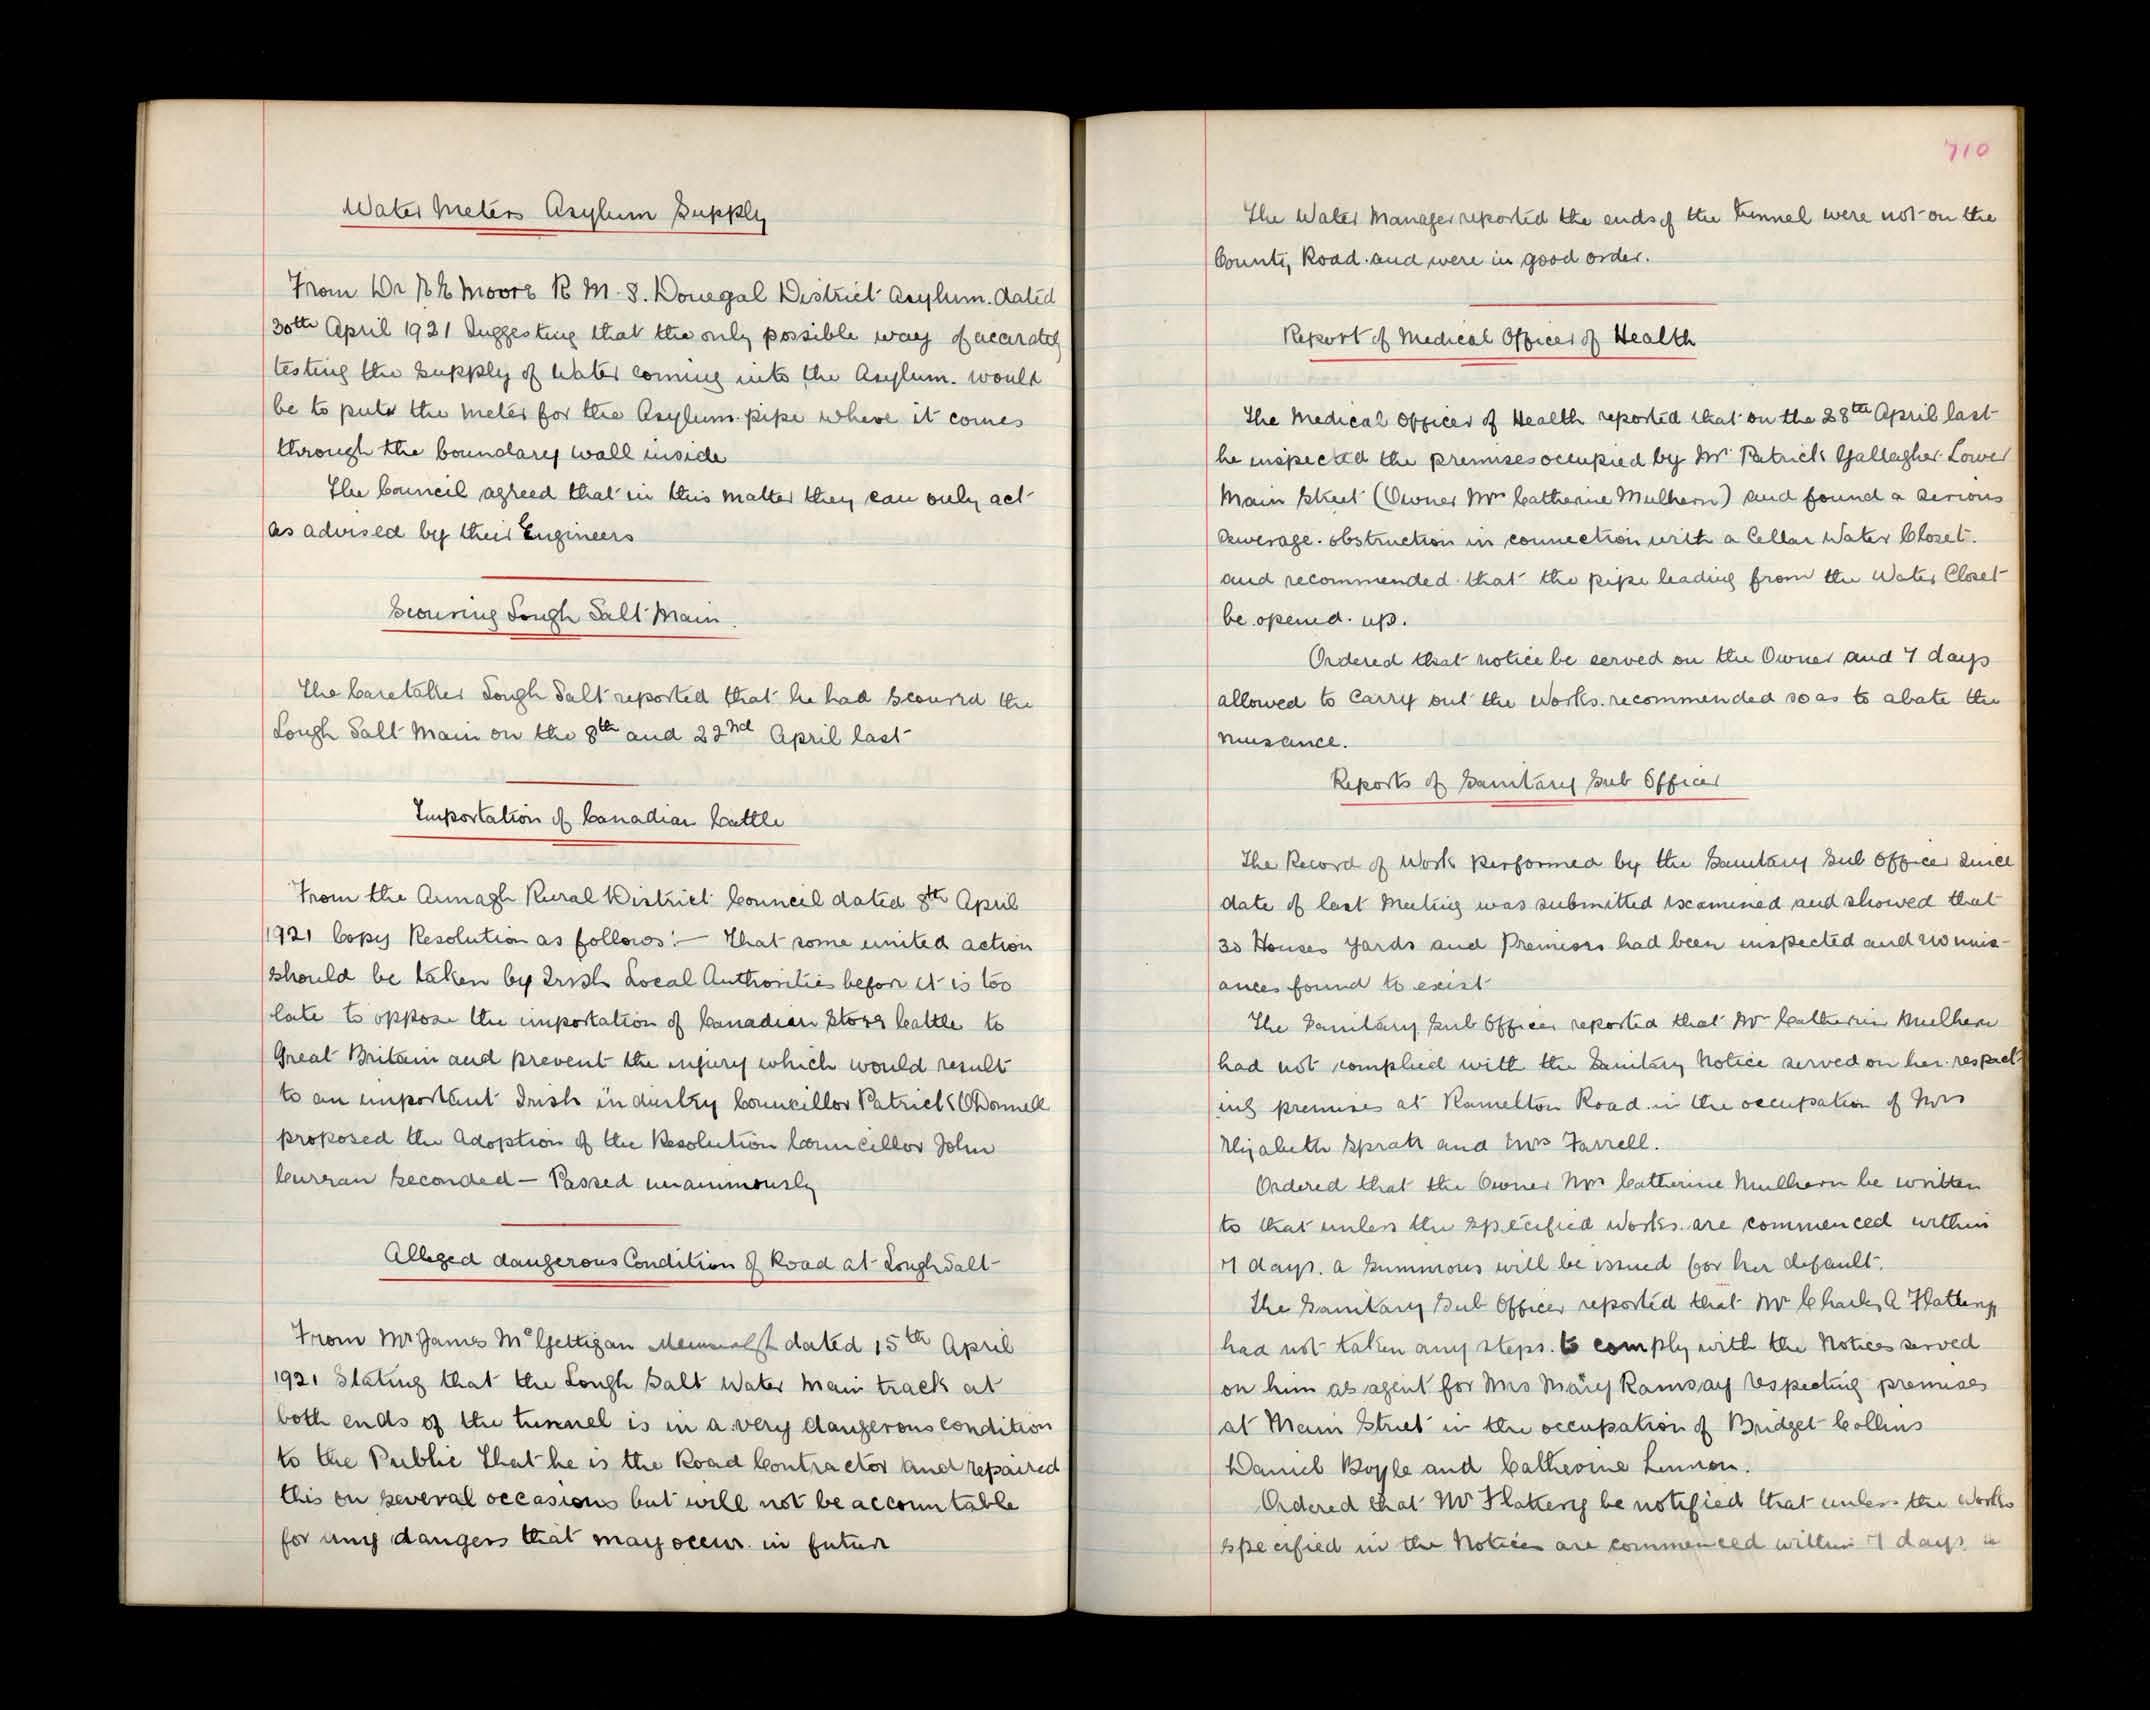 Water Meters Asylum Supply
From Dr R E Moore R M. S. Donegal District Asylum. dated
30th April 1921 Suggesting that the only possible way of accurately
testing the supply of Water coming into the Asylum. would
be to put the meter for the Asylum pipe where it comes
through the boundary wall inside
The Council agreed that in this matter they can only act
as advised by their Engineers
Scouring Lough Salt Main.
The Caretaker Lough Salt reported that he had scoured the
Lough Salt Main on the 8th and 22nd April last
Importation of Canadian Cattle
From the Armagh Rural District Council dated 8th April
1921 Copy Resolution as follows:— That some united action
should be taken by Irish Local Authorities before it is too
late to oppose the importation of Canadian Store Cattle to
Great Britain and prevent the injury which would result
to an important Irish industry Councillor Patrick O'Donnell
proposed the Adoption of the Resolution Councillor John
Curran seconded — Passed unanimously
Alleged dangerous Condition of Road at Lough Salt
From Mr James McGettigan dated 15th April
1921 Stating that the Lough Salt Water Main track at
both ends of the tunnel is in a very dangerous condition
to the Public That he is the Road Contractor and repaired
this on several occasions but will not be accountable
for any dangers that may occur in future
710
The Water Manager reported the ends of the tunnel were not on the
County Road. and were in good order.
Report of Medical Officer of Health
The Medical Officer of Health reported that on the 28th April last
he inspected the premises occupied by Mr Patrick Gallagher Lower
Main Street (Owner Mrs Catherine Mulhern) and found a serious
sewerage. obstruction in connection with a Cellar Water Closet.
and recommended that the pipe leading from the Water Closet
be opened. up.
Ordered that notice be served on the Owner and 7 days
allowed to carry out the Works. recommended so as to abate the
nuisance.
Reports of Sanitary Sub Officer
The Record of Work performed by the Sanitary Sub Officer since
date of last Meeting was submitted examined and showed that
30 Houses Yards and Premises had been inspected and no nuis-
ances found to exist
The Sanitary Sub Officer reported that Mrs Catherine Mulhern
had not complied with the Sanitary Notice served on her respect-
ing premises at Ramelton Road in the occupation of Mrs
Elizabeth Spratt and Mrs Farrell.
Ordered that the Owner Mrs Catherine Mulhern be written
to that unless the specified works. are commenced within
7 days. a summons will be issued for her default.
The Sanitary Sub Officer reported that Mr Charles A Flattery
had not taken any steps. to comply with the Notices served
on him as agent for Mrs Mary Ramsay respecting premises
at Main Street in the occupation of Bridget Collins
Daniel Boyle and Catherine Lennon.
Ordered that Mr Flattery be notified that unless the Works
specified in the Notices are commenced within 7 days a